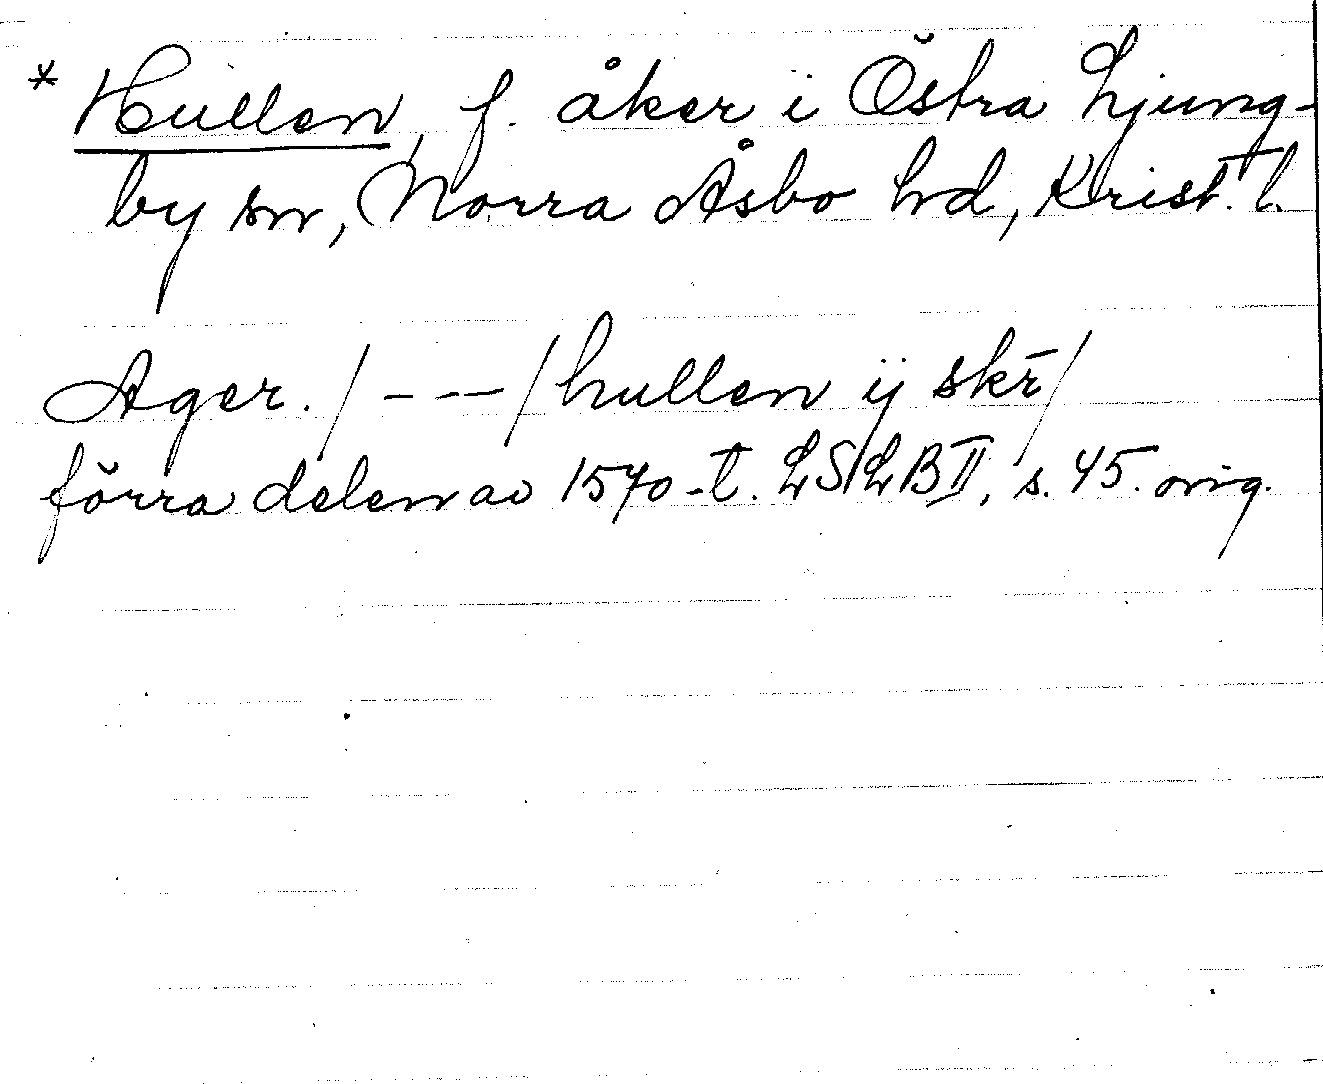 * Hullen, f. åker i Östra Ljung-
by sn, Norra Åsbo hd, Krist. l.
Ager. / - - - / hullen ij skr̄ /
förra delen av 1570-t. LSLB II, s. 45. orig.